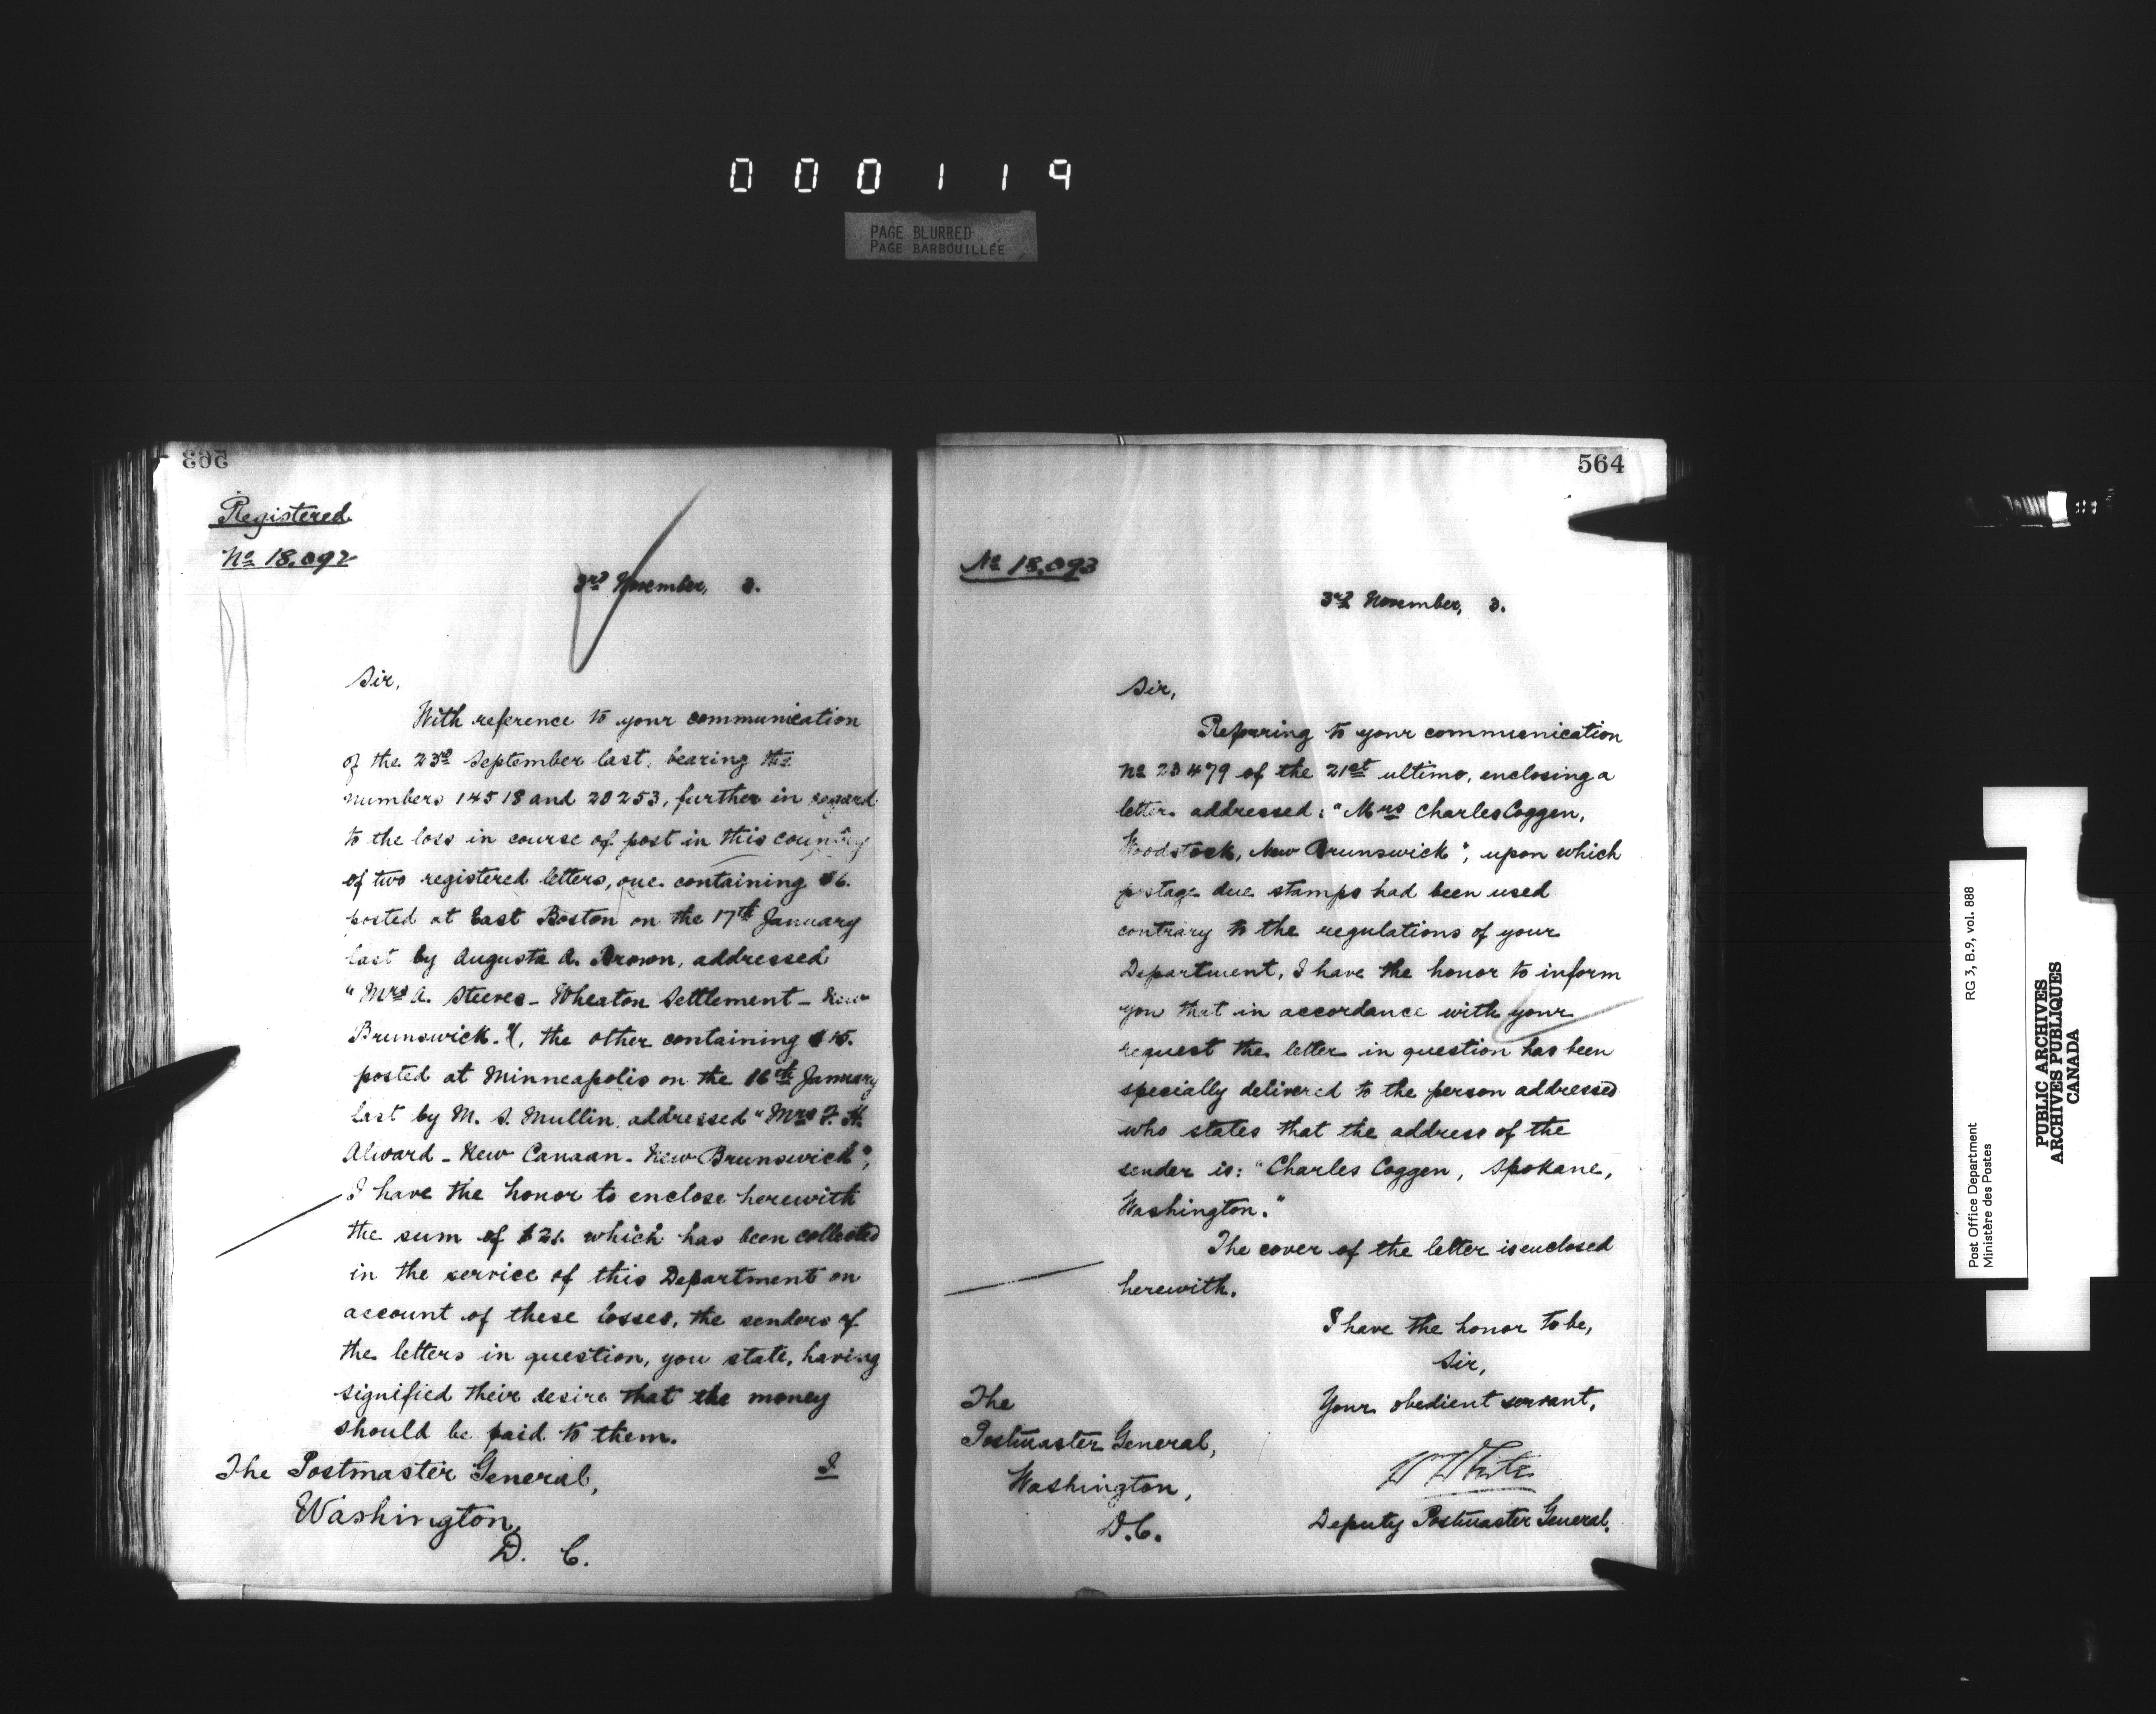 000119
PAGE BLURRED
PAGE BARBOUILLÉE
563
Registered.
No 18.092
3rd November, 3.
Sir,
With reference to your communication
of the 23rd September last, bearing the
numbers 14518 and 20253, further in regard
to the loss in course of post in this country
of two registered letters, one containing $6.
posted at East Boston on the 17th January
last by Augusta A. Brown, addressed
"Mrs A. Steeves - Wheaton Settlement - New
Brunswick.", the other containing $15.
posted at Minneapolis on the 16th January
last by M. S. Mullin, addressed "Mrs F. H.
Alward - New Canaan - New Brunswick",
I have the honor to enclose herewith
the sum of $21. which has been collected
in the service of this Department on
account of these losses, the senders of
the letters in question, you state, having
signified their desire that the money
should be paid to them.
The Postmaster General,
Washington,
D. C.
I
564
No 18.093
3rd November, 3.
Sir,
Referring to your communication
No 23479 of the 21st ultimo, enclosing a
letter addressed: "Mrs Charles Coggen,
Woodstock, New Brunswick", upon which
postage due stamps had been used
contrary to the regulations of your
Department, I have the honor to inform
you that in accordance with your
request the letter in question has been
specially delivered to the person addressed
who states that the address of the
sender is: "Charles Coggen, Spokane,
Washington."
The cover of the letter is enclosed
herewith.
I have the honor to be,
Sir,
Your obedient servant,
W White
Deputy Postmaster General.
The
Postmaster General,
Washington,
D.C.
Post Office Department
Ministère des Postes
RG 3, B.9, vol. 888
PUBLIC ARCHIVES
ARCHIVES PUBLIQUES
CANADA